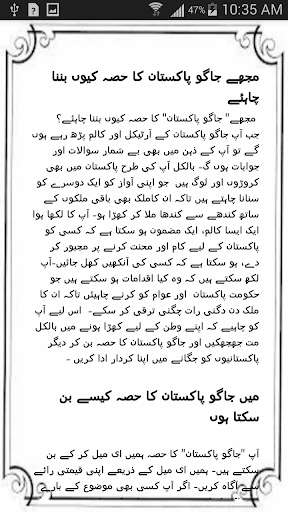 47% 10:35 AM
مجھے جاگو پاکستان کا حصہ کیوں بننا
چاہئے
مجھے" جاگو پاکستان" کا حصہ کیوں بننا چاہئے؟
جب آپ جاگو پاکستان کے آرٹیکل اور کالم پڑھ رہے ہوں
گے تو آپ کے ذہن میں بھی بے شمار سوالات اور
جوابات ہوں گ- بالکل آپ کی طرح پاکستان میں بھی
کروڑوں اور لوگ ہیں جو اپنی آواز کو ایک دوسرے کو
سنانا چاہتے ہیں تاکہ ان کاملک بھی باقی ملکوں کے
ساتھ کندھے سے کندھا ملا کر کھڑا ہو- آپ کا لکھا ہوا
ایک ایسا کالم، ایک مضمون ہو سکتا ہے کہ کسی کو
پاکستان کے لیے کام اور محنت کرنے پر مجبور کر
دے، ہو سکتا ہے کہ کسی کی آنکھیں کھل جائیں-آپ
لکھ سکتے ہیں کہ وہ کیا اقدامات ہو سکتے ہیں جو
حکومت پاکستان اور عوام کو کرنے چاہیئں تاکہ ان کا
ملک دن دگنی رات چگنی ترقی کر سکے- اس لیے آپ
کو چاہیے کہ اپنے وطن کے لیے کھڑا ہونے میں بالکل
مت جھجھکیں اور جاگو پاکستان کا حصہ بن کر دیگر
پاکستانیوں کو جگانے میں اپنا کردار ادا کریں -
میں جاگو پاکستان کا حصہ کیسے بن
سکتا ہوں
آپ "جاگو پاکستان" کا حصہ ہمیں ای میل کر کے بن
سکتے ہیں- ہمیں ای میل کے ذریعے اپنی قیمتی رائے
سے آگاہ کریں- اگر آپ کسی بھی موضوع کے بارے